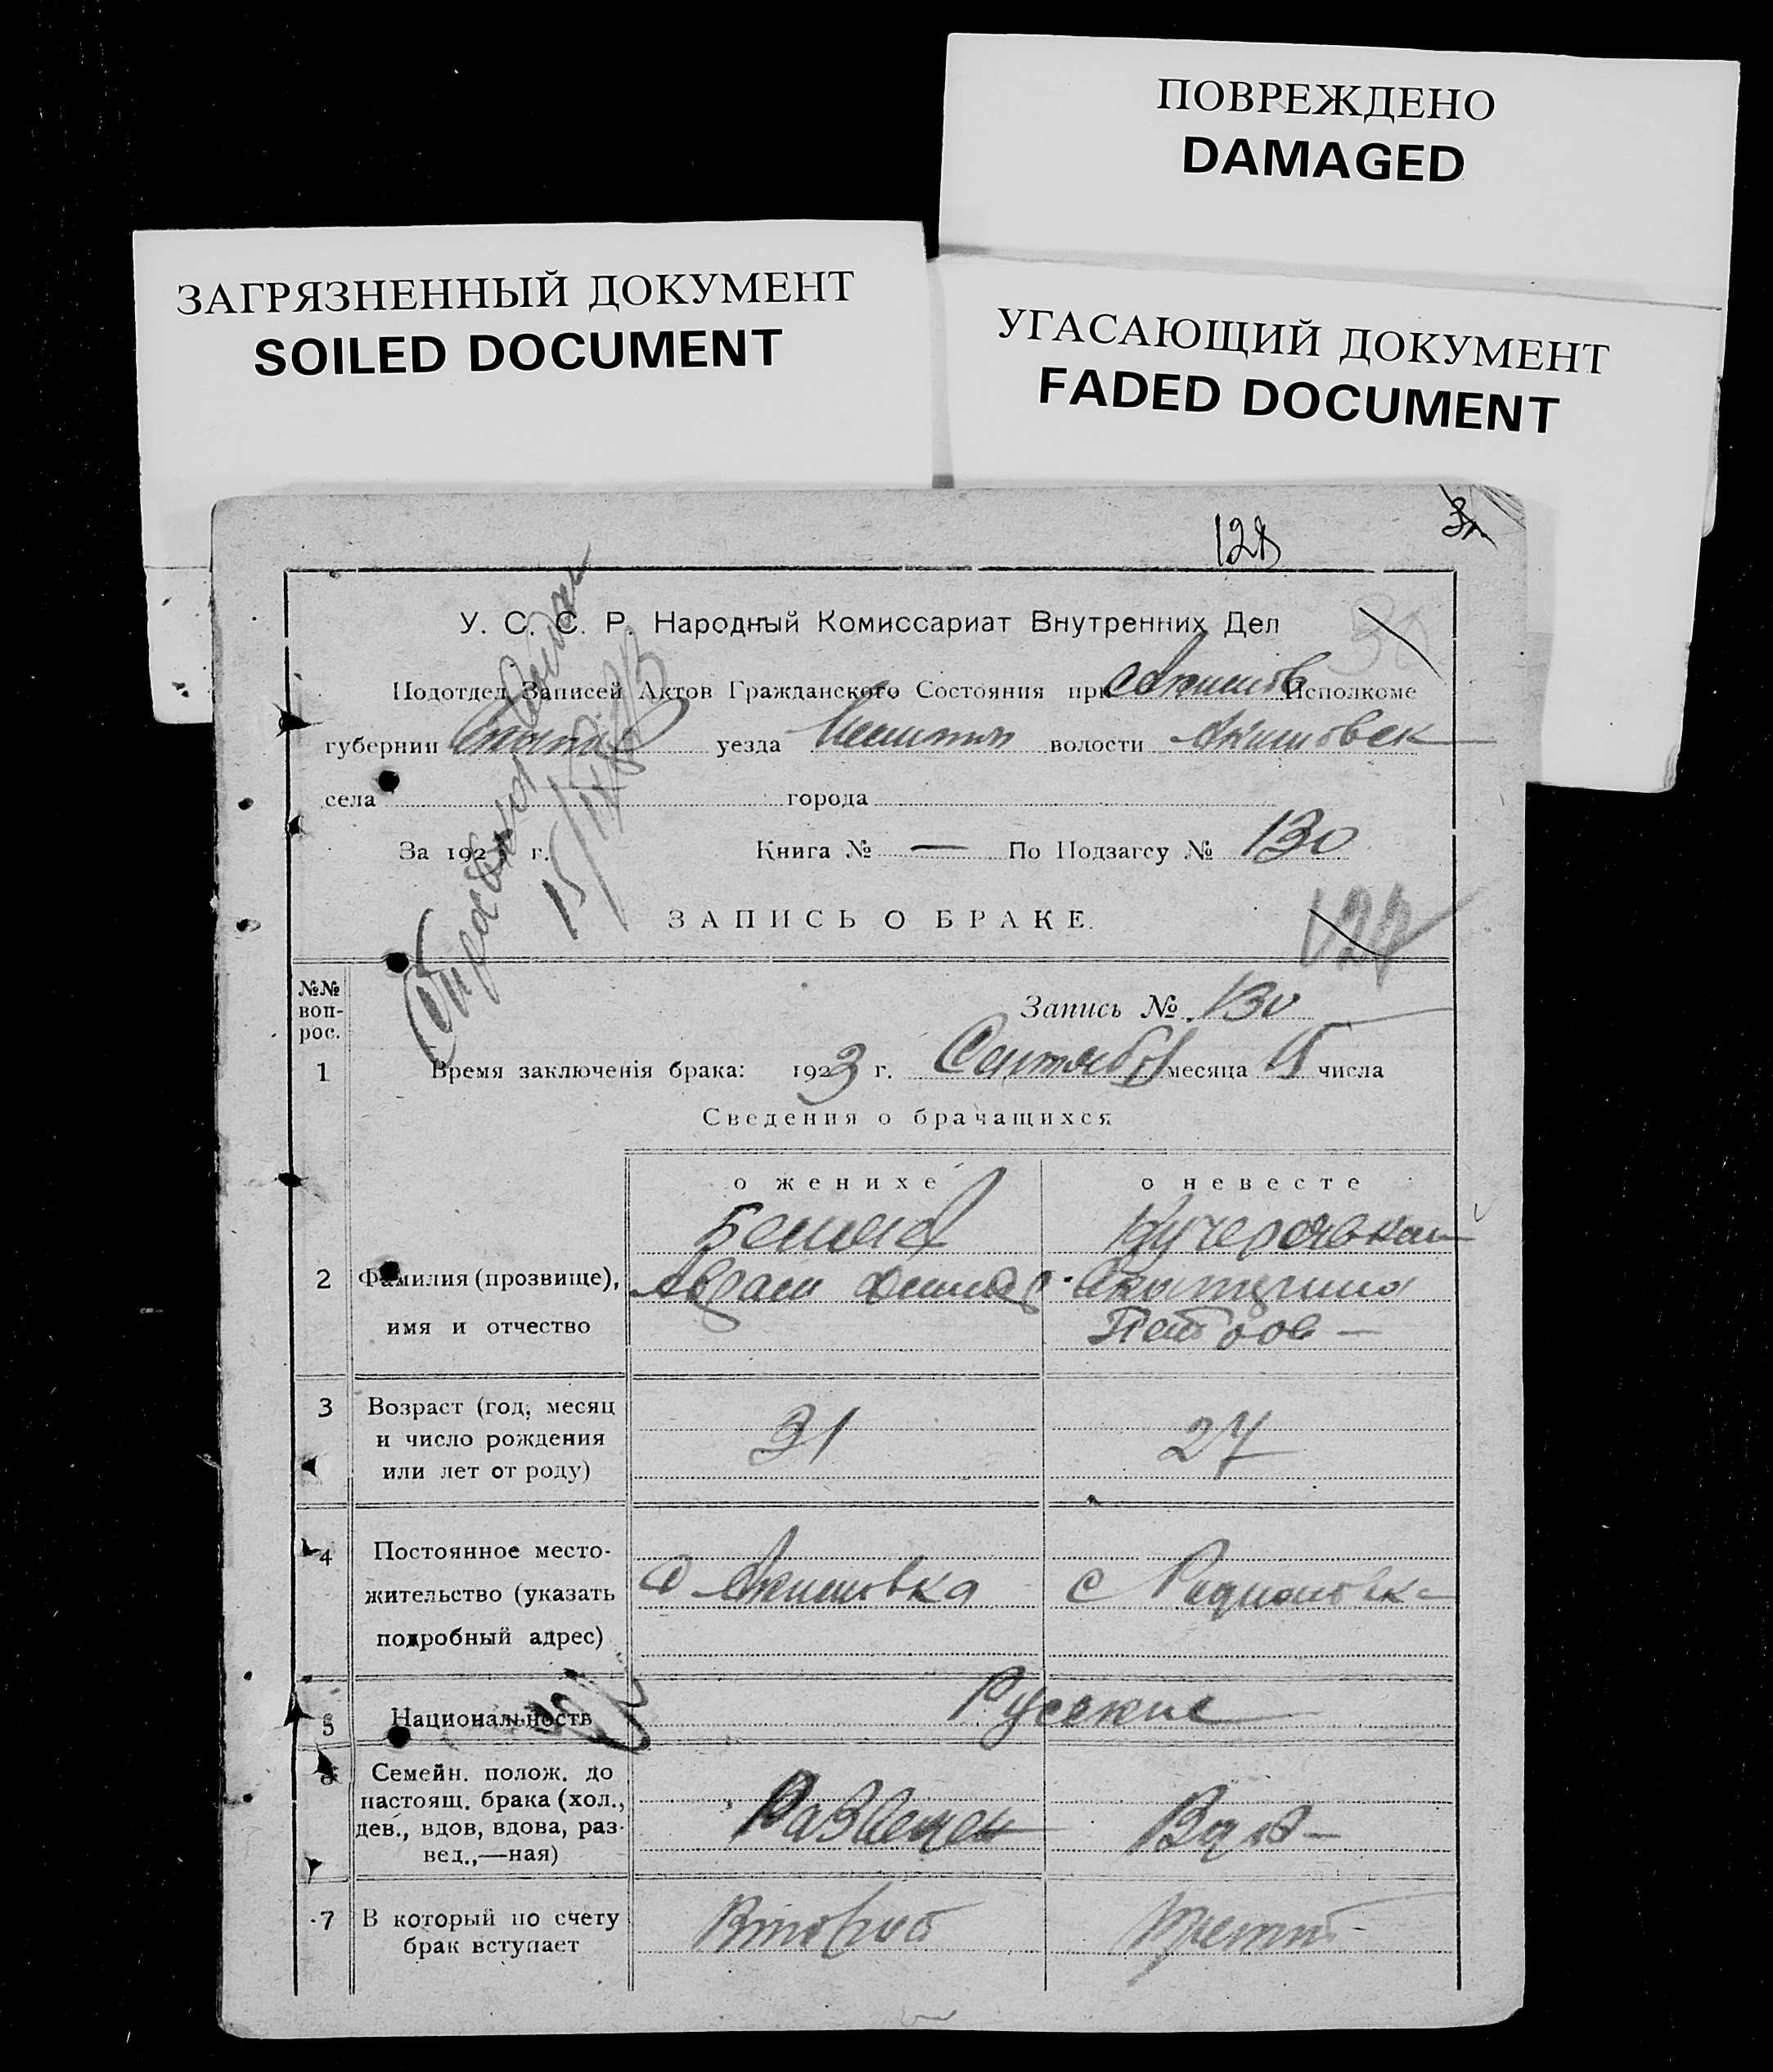 ПОВРЕЖДЕНО
DAMAGED
ЗАГРЯЗНЕННЫЙ ДОКУМЕНТ
SOILED DOCUMENT
УГАСАЮЩИЙ ДОКУМЕНТ
FADED DOCUMENT
128
У. С. С. Р. Народный Комиссариат Внутренних Дел
Подотдел Записей Актов Гражданского Состояния при Исполкоме
губернии уезда волости Акимовск
села города
За 192 г. Книга № — По Подзагсу № 130
ЗАПИСЬ О БРАКЕ.
127
№№ воп-
рос.
Запись № 130
1 Время заключенія брака: 1923 г. Сентября месяца 15 числа
Сведения о брачащихся
о женихе о невесте
2 Фамилия (прозвище),
имя и отчество
Авраам
Петров —
3 Возраст (год, месяц
и число рождения
или лет от роду)
31 27
4 Постоянное место-
жительство (указать
подробный адрес)
с Акимовка с Родионовка
5 Национальность Русские
6 Семейн. полож. до
настоящ. брака (хол.,
дев., вдов, вдова, раз-
вед.,—ная)
Разведен Вдов —
7 В который по счету
брак вступает
Второй Третий